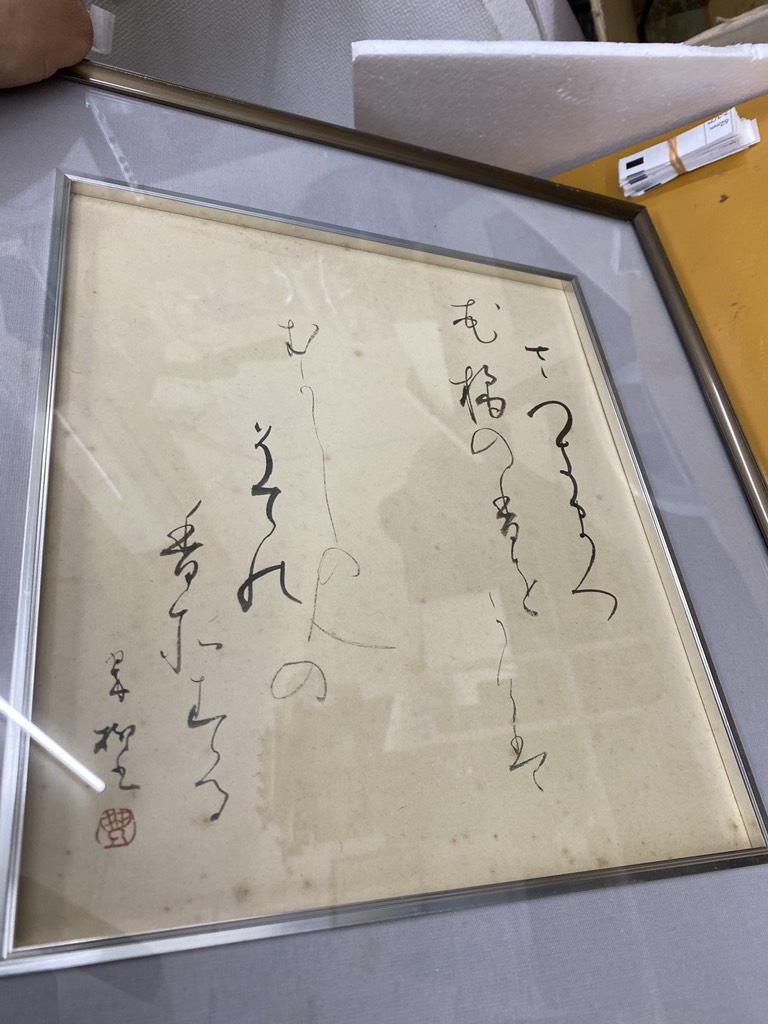 さつきまつ
花橘の香をかけは
むかしの人の
そての
香そする
62mm